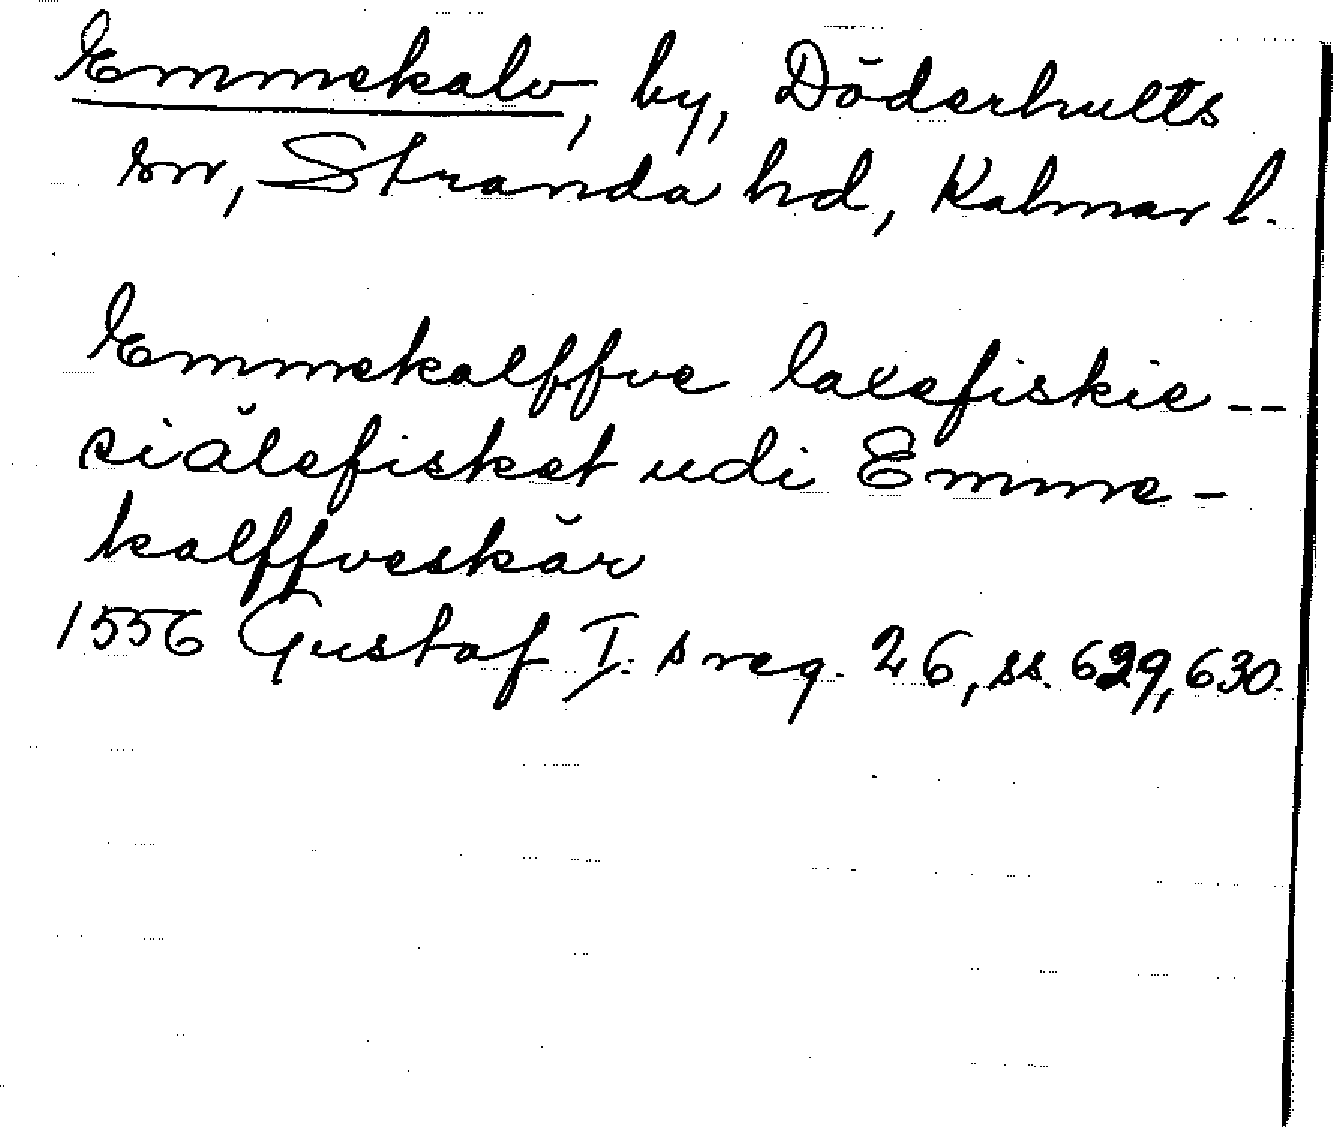 Emmekalv, by, Döderhults
sn, Stranda hd, Kalmar l.
Emmekalffve laxefiskie --
siälefisket udi Emme-
kalffveskär
1556 Gustaf I:s reg. 26, ss. 629, 630.